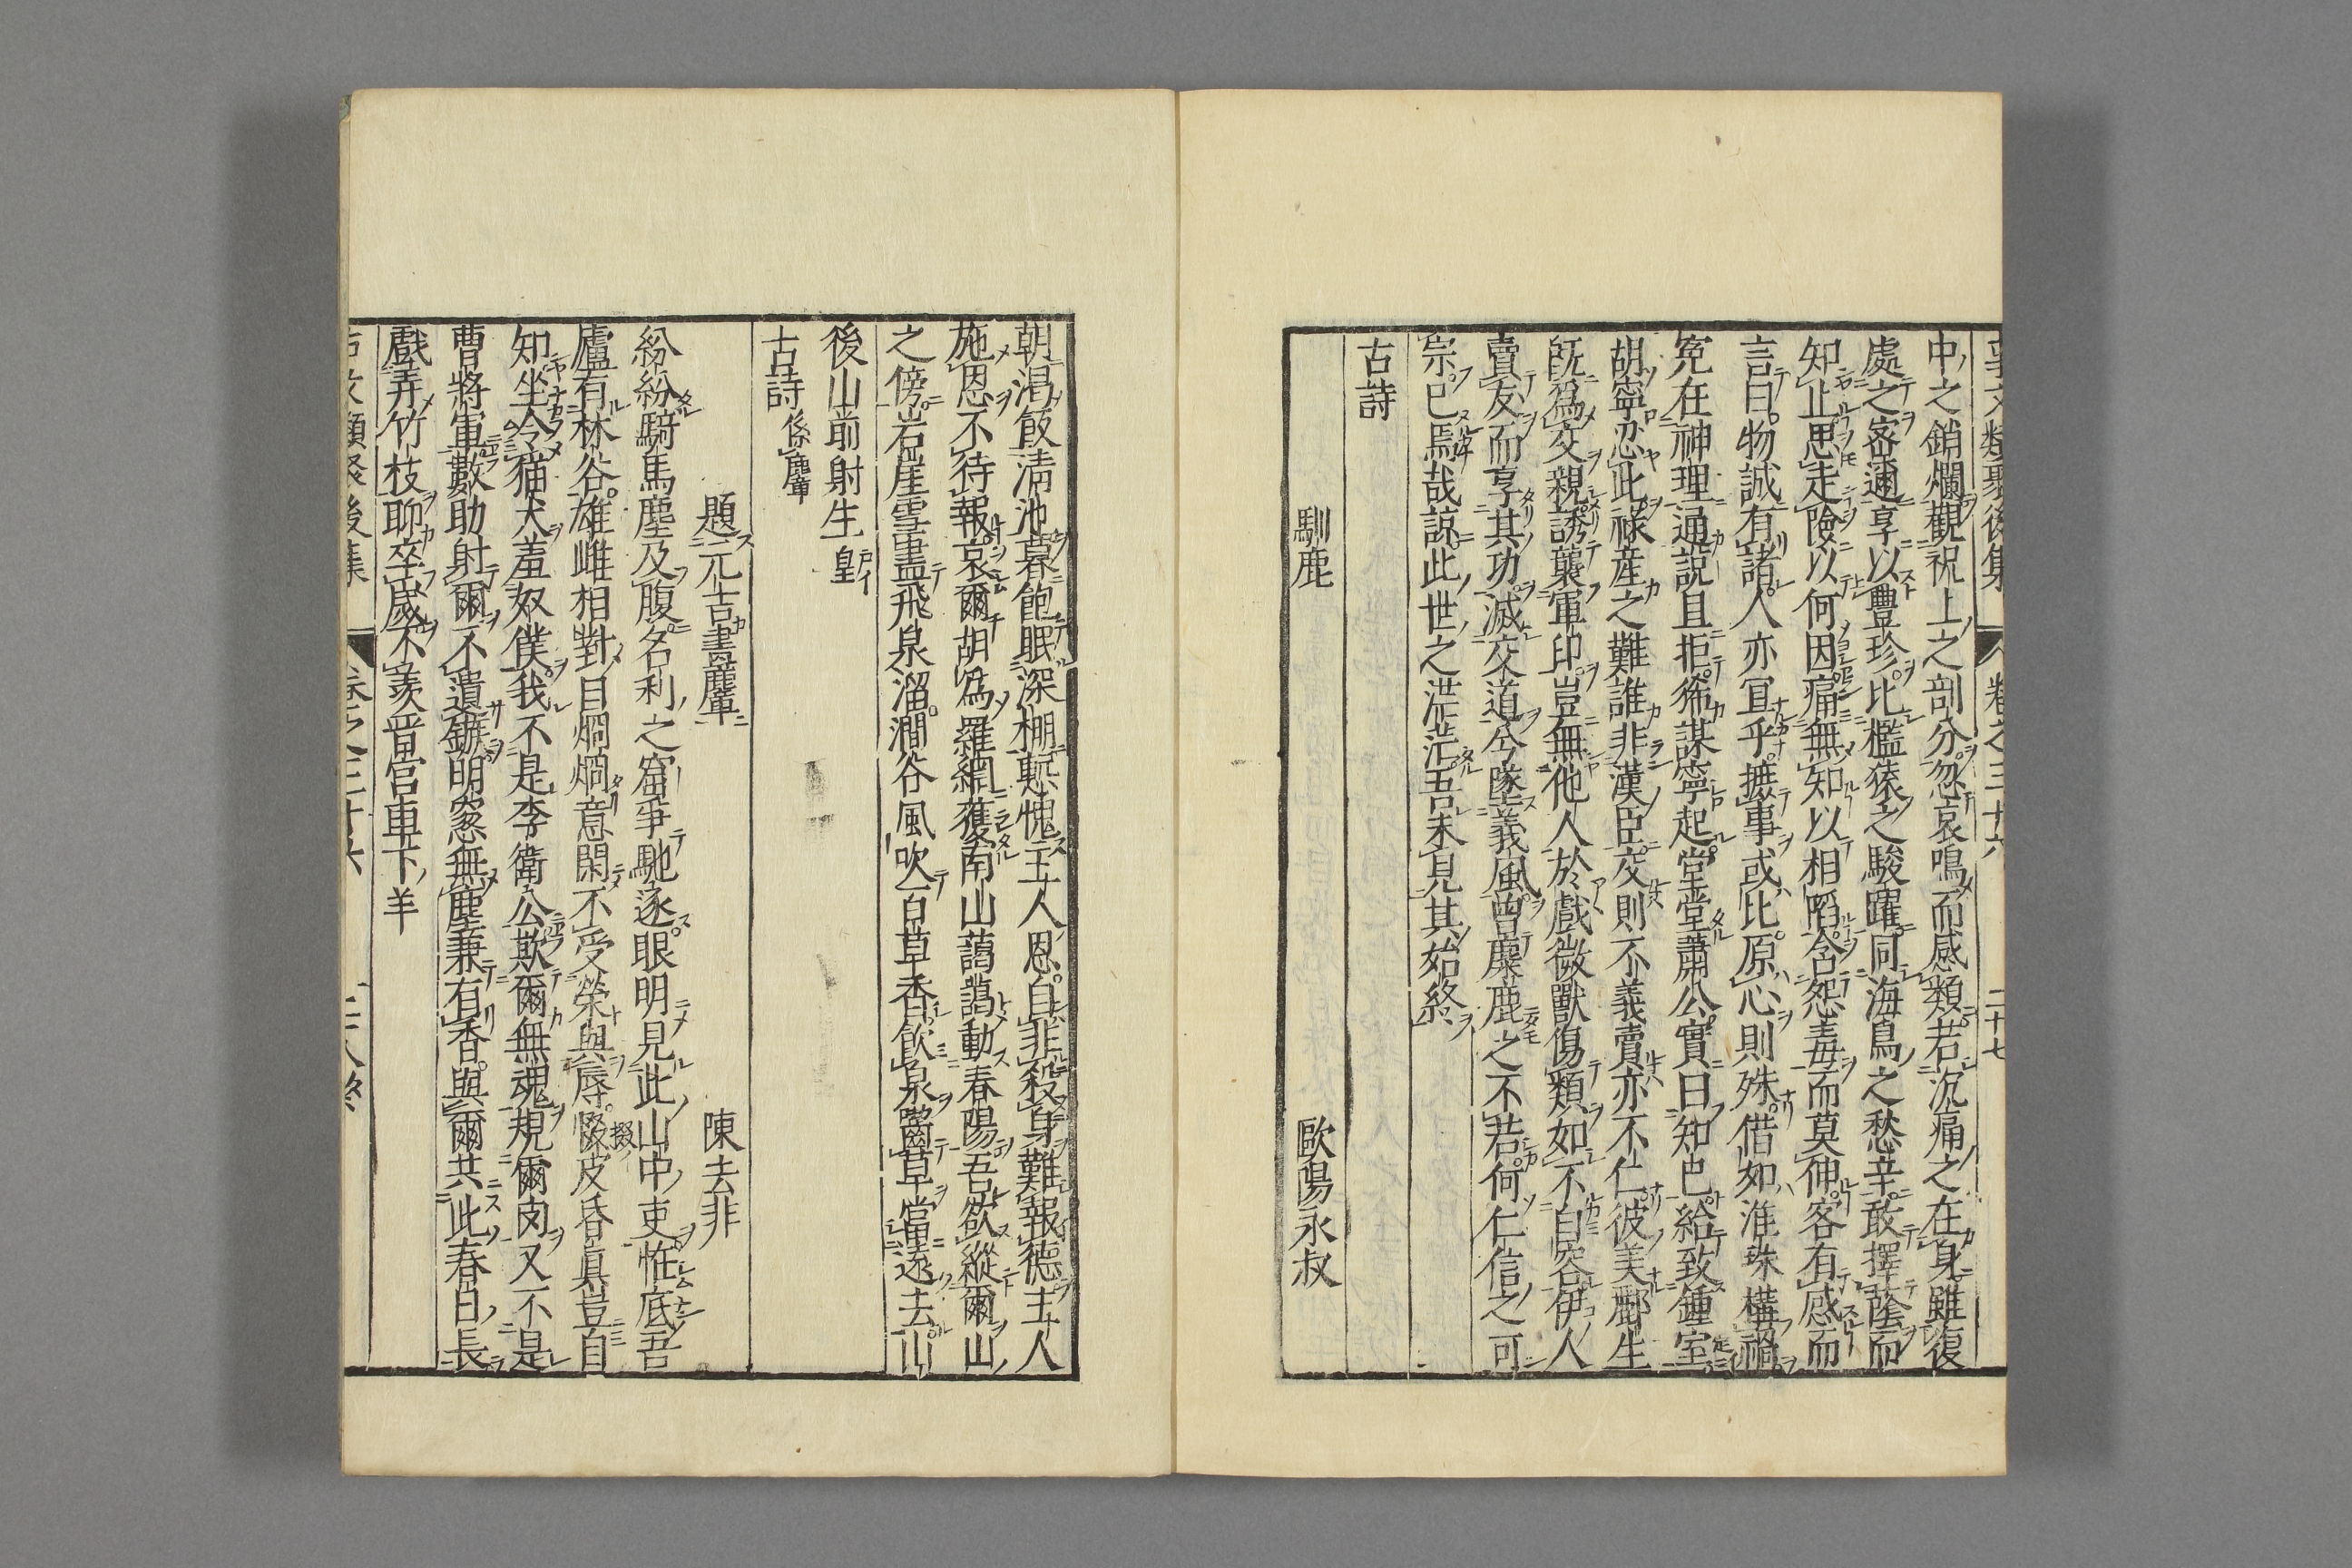 事文類聚後集　卷之三十六　二十七
中之銷爛觀祝上之剖分忽哀鳴而感類若沉痛之在身雖復
處之密邇享以豊珍比檻猿之駿躍同海鳥之愁辛敢擇蔭而
知止思走險以何因痛無知以相䧟含怨毒而莫伸客有感而
言曰物誠有諸人亦冝乎摭事或比原心則殊借如淮珠構禍
冤在神理通說且拒狶謀寧起堂堂蕭公實曰知巳給致鍾室
胡寧忍此祿産之難誰非漢臣交則不義賣亦不仁彼美酈生
旣爲交親誘襲軍印豈無他人於戲微獸傷類如不自容伊人
賣友而享其功滅交道兮墜義風曾麋鹿之不若何仁信之可
宗已焉哉諒此世之茫茫吾未見其始終
古詩
馴鹿　歐陽永叔
朝渴飮清池暮飽眠深棚慙愧主人恩自非殺身難報德主人
施恩不待報哀爾胡爲羅網獲南山藹藹動春陽吾欲縱爾山
之傍岩崖雪盡飛泉溜澗谷風吹百草香飮泉齧草當遠去山
後山前射生皇
古詩 係麞
題元吉畫麞　陳去非
紛紛騎馬塵及腹名利之窟爭馳逐眼明見此山中吏怪底吾
廬有林谷雄雌相對目烱烱意閑不受榮與辱掇皮皆眞豈自
知坐令猫犬羞奴僕我不是李衛公欺爾無魂規爾肉又不是
曹將軍數助射爾不遺鏃明窓無塵兼有香與爾共此春日長
戲弄竹枝聊卒歲不羨晉宮車下羊
事文類聚後集　卷之三十六　二十八終